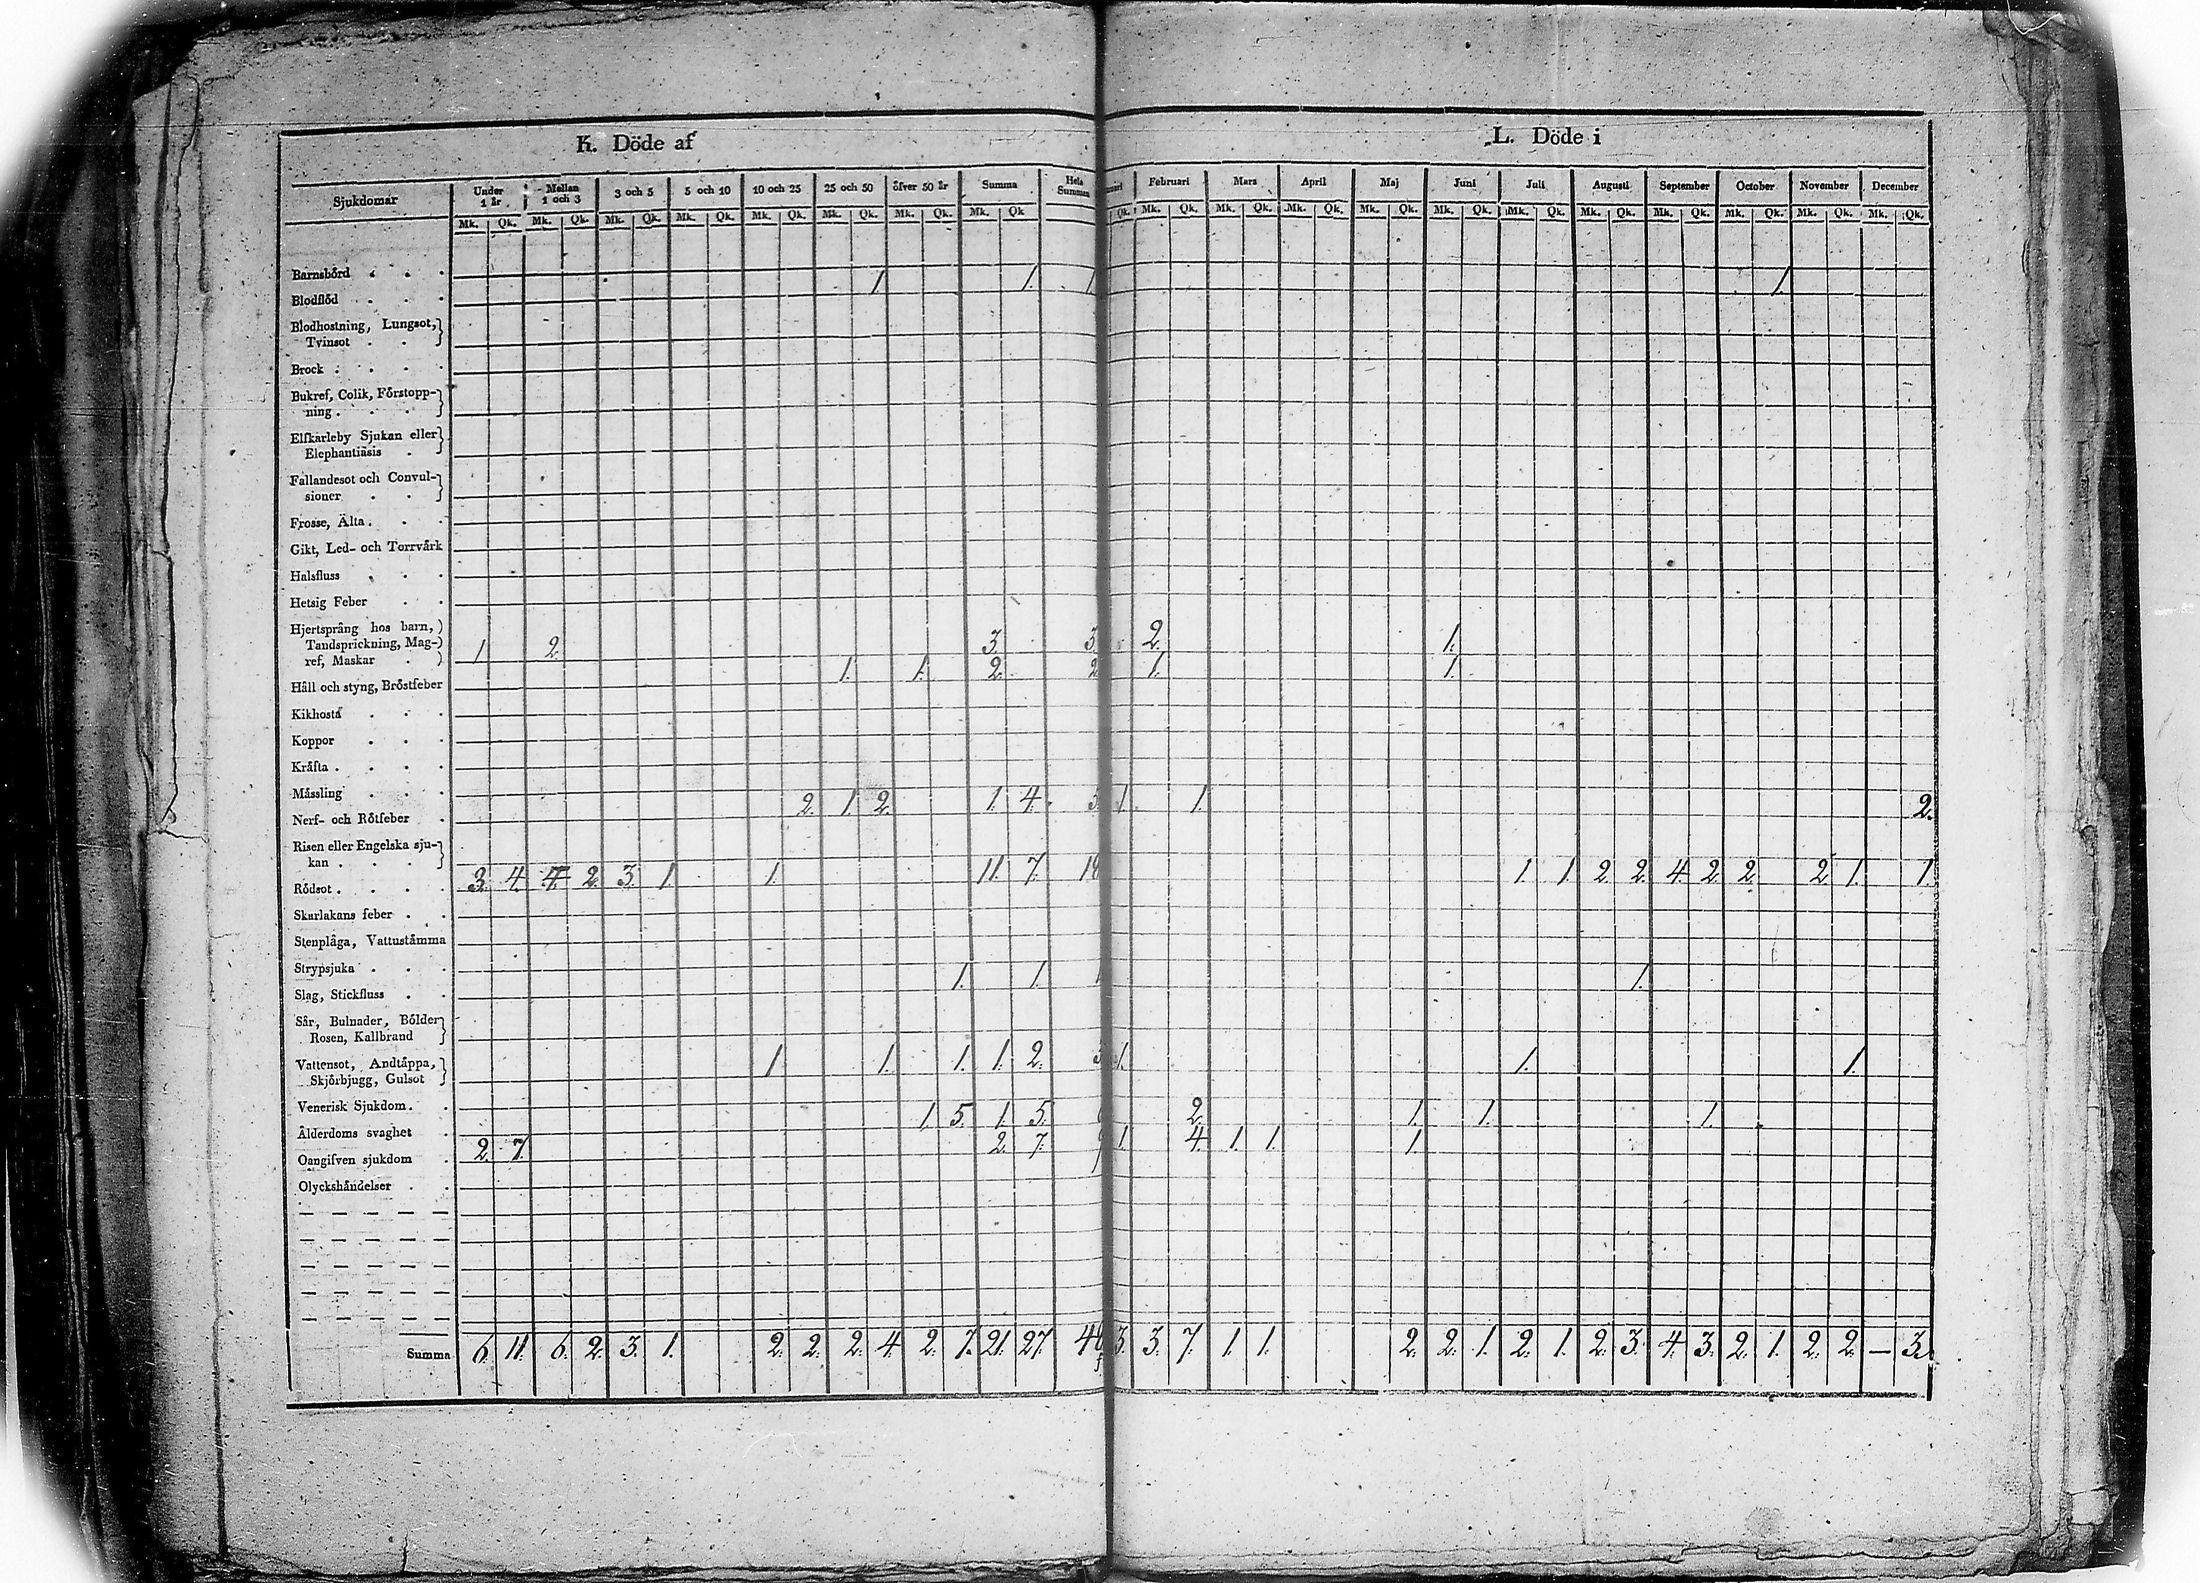 K. Döde af
L. Döde i
Sjukdomar Under 1 år Mellan 1 och 3 3 och 5 5 och 10 10 och 25 25 och 50 öfver 50 år Summa Hela Summan Februari Mars April Maj Juni Juli Augusti September October November December
Mk. Qk. Mk. Qk. Mk. Qk. Mk. Qk. Mk. Qk. Mk. Qk. Mk. Qk. Mk. Qk Qk. Mk. Qk. Mk. Qk. Mk. Qk. Mk. Qk. Mk. Qk. Mk. Qk. Mk. Qk. Mk. Qk. Mk. Qk. Mk. Qk. Mk. Qk.
Barnsbörd . . .
1 1. 1. 1.
Blodflöd . . .
Blodhostning, Lungsot,
Tvinsot . . .
Brock . . . .
Bukref, Colik, Förstopp-
ning . . .
Elfkarleby Sjukan eller
Elephantiasis .
Fallandesot och Convul-
sioner . . .
Frosse, Älta . . .
Gikt, Led- och Torrvärk
Halsfluss . . .
Hetsig Feber . .
Hjertsprång hos barn,
Tandsprickning, Mag-
ref, Maskar .
1 2. 3. 3. 2. 1.
Håll och styng, Bröstfeber
1. 1. 2. 2 1. 1.
Kikhosta . . .
Koppor . . .
Kräfta . . . .
Mässling . . .
Nerf- och Rötfeber .
2. 1. 2. 1. 4. 1. 1. 2.
Risen eller Engelska sju-
kan . . .
Rödsot . . . .
3. 4. 4. 2. 3. 1. 1. 11. 7. 18 1. 1. 2. 2. 4. 2. 2. 2. 1. 1.
Skarlakans feber . .
Stenplåga, Vattustämma
Strypsjuka . . .
Slag, Stickfluss . .
1. 1. 1.
Sår, Bulnader, Bölder
Rosen, Kallbrand
Vattensot, Andtäppa,
Skjörbjugg, Gulsot
1. 1. 1. 1. 2. 3 1. 1. 1.
Venerisk Sjukdom . .
Ålderdoms svaghet .
1. 5. 1. 5. 2. 1. 1. 1.
Oangifven sjukdom .
2. 7. 2. 7. 9 1. 4. 1. 1. 1.
Olyckshändelser . .
Summa 6. 11. 6. 2. 3. 1. 2. 2. 2. 4. 2. 7. 21. 27. 48 3. 3. 7. 1. 1. 2. 2. 1. 2. 1. 2. 3. 4. 3. 2. 1. 2. 2. — 3.